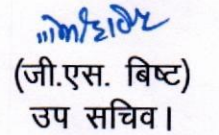 (जी.एस. बिष्ट)
उप सचिव।